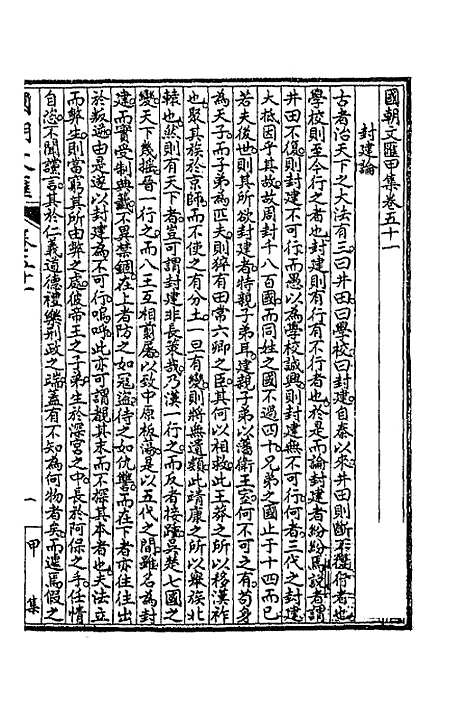 國朝文匯甲集卷五十一
封建論
古者治天下之大法有三曰井田曰學校曰封建自秦以來井田則斷不復行者也
學校則至今行之者也封建則有行有不行者也於是而論封建者紛紛焉説者謂
井田不復則封建不可行而愚以為學校誠興則封建無不可行何者三代之封建
大抵因乎其故故周封千八百國而同姓之國不過四十兄弟之國止于十四而已
若夫後世則其所欲封建者特親子弟耳建親子弟以藩衛王室何不可之有苟身
為天子而子弟為匹夫則猝有田常六卿之臣其何以相救此王莽之所以移漢祚
也聚其族於京師而不使之有分土一旦有變則將無遺類此靖康之所以舉族北
轅也然則有天下者豈可謂封建非長策哉乃漢一行之而反者接踵吳楚七國之
變天下幾搖晉一行之而八王互相翦屠以致中原板蕩是以五代之間雖名為封
建而實受制典籤不異禁錮在上者防之如冦盜待之如仇讐而在下者亦往往出
於叛逆由是遂以封建為不可行嗚呼此亦可謂覩其末而不探其本者也夫法立
而弊生則當窮其所由弊之處彼帝王之子弟生於深宮之中長於阿保之手任情
自恣不聞讜言其於仁義道德禮樂刑政之端蓋有不知為何物者矣而遽焉假之
國朝文匯
卷五十一
一
甲集